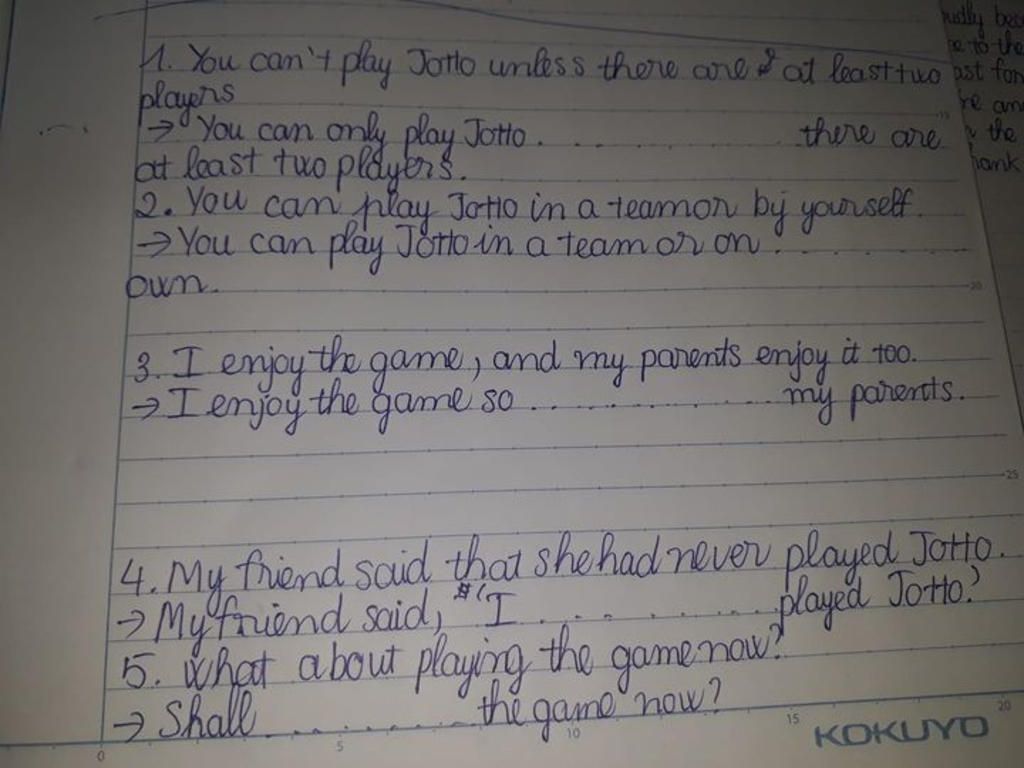 1. You can't play Jotto unless there are at least two
players
→ You can only play Jotto ............ there are
at least two players.
2. You can play Jotto in a team or by yourself.
→ You can play Jotto in a team or on ............
own.
3. I enjoy the game, and my parents enjoy it too.
→ I enjoy the game so ............ my parents.
4. My friend said that she had never played Jotto.
→ My friend said, "I ............ played Jotto."
5. What about playing the game now?
→ Shall ............ the game now?
KOKUYO
0 5 10 15 20
20
25